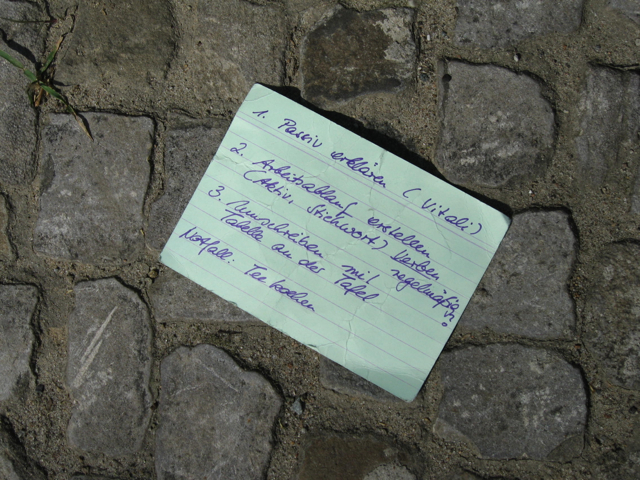 1. Passiv erklären (Vitali)
2. Arbeitsablauf erstellen
(Aktiv, Stichwort) Verben regelmäßig?
3. Umschreiben mit
Tabelle an der Tafel
Notfall: Tee kochen